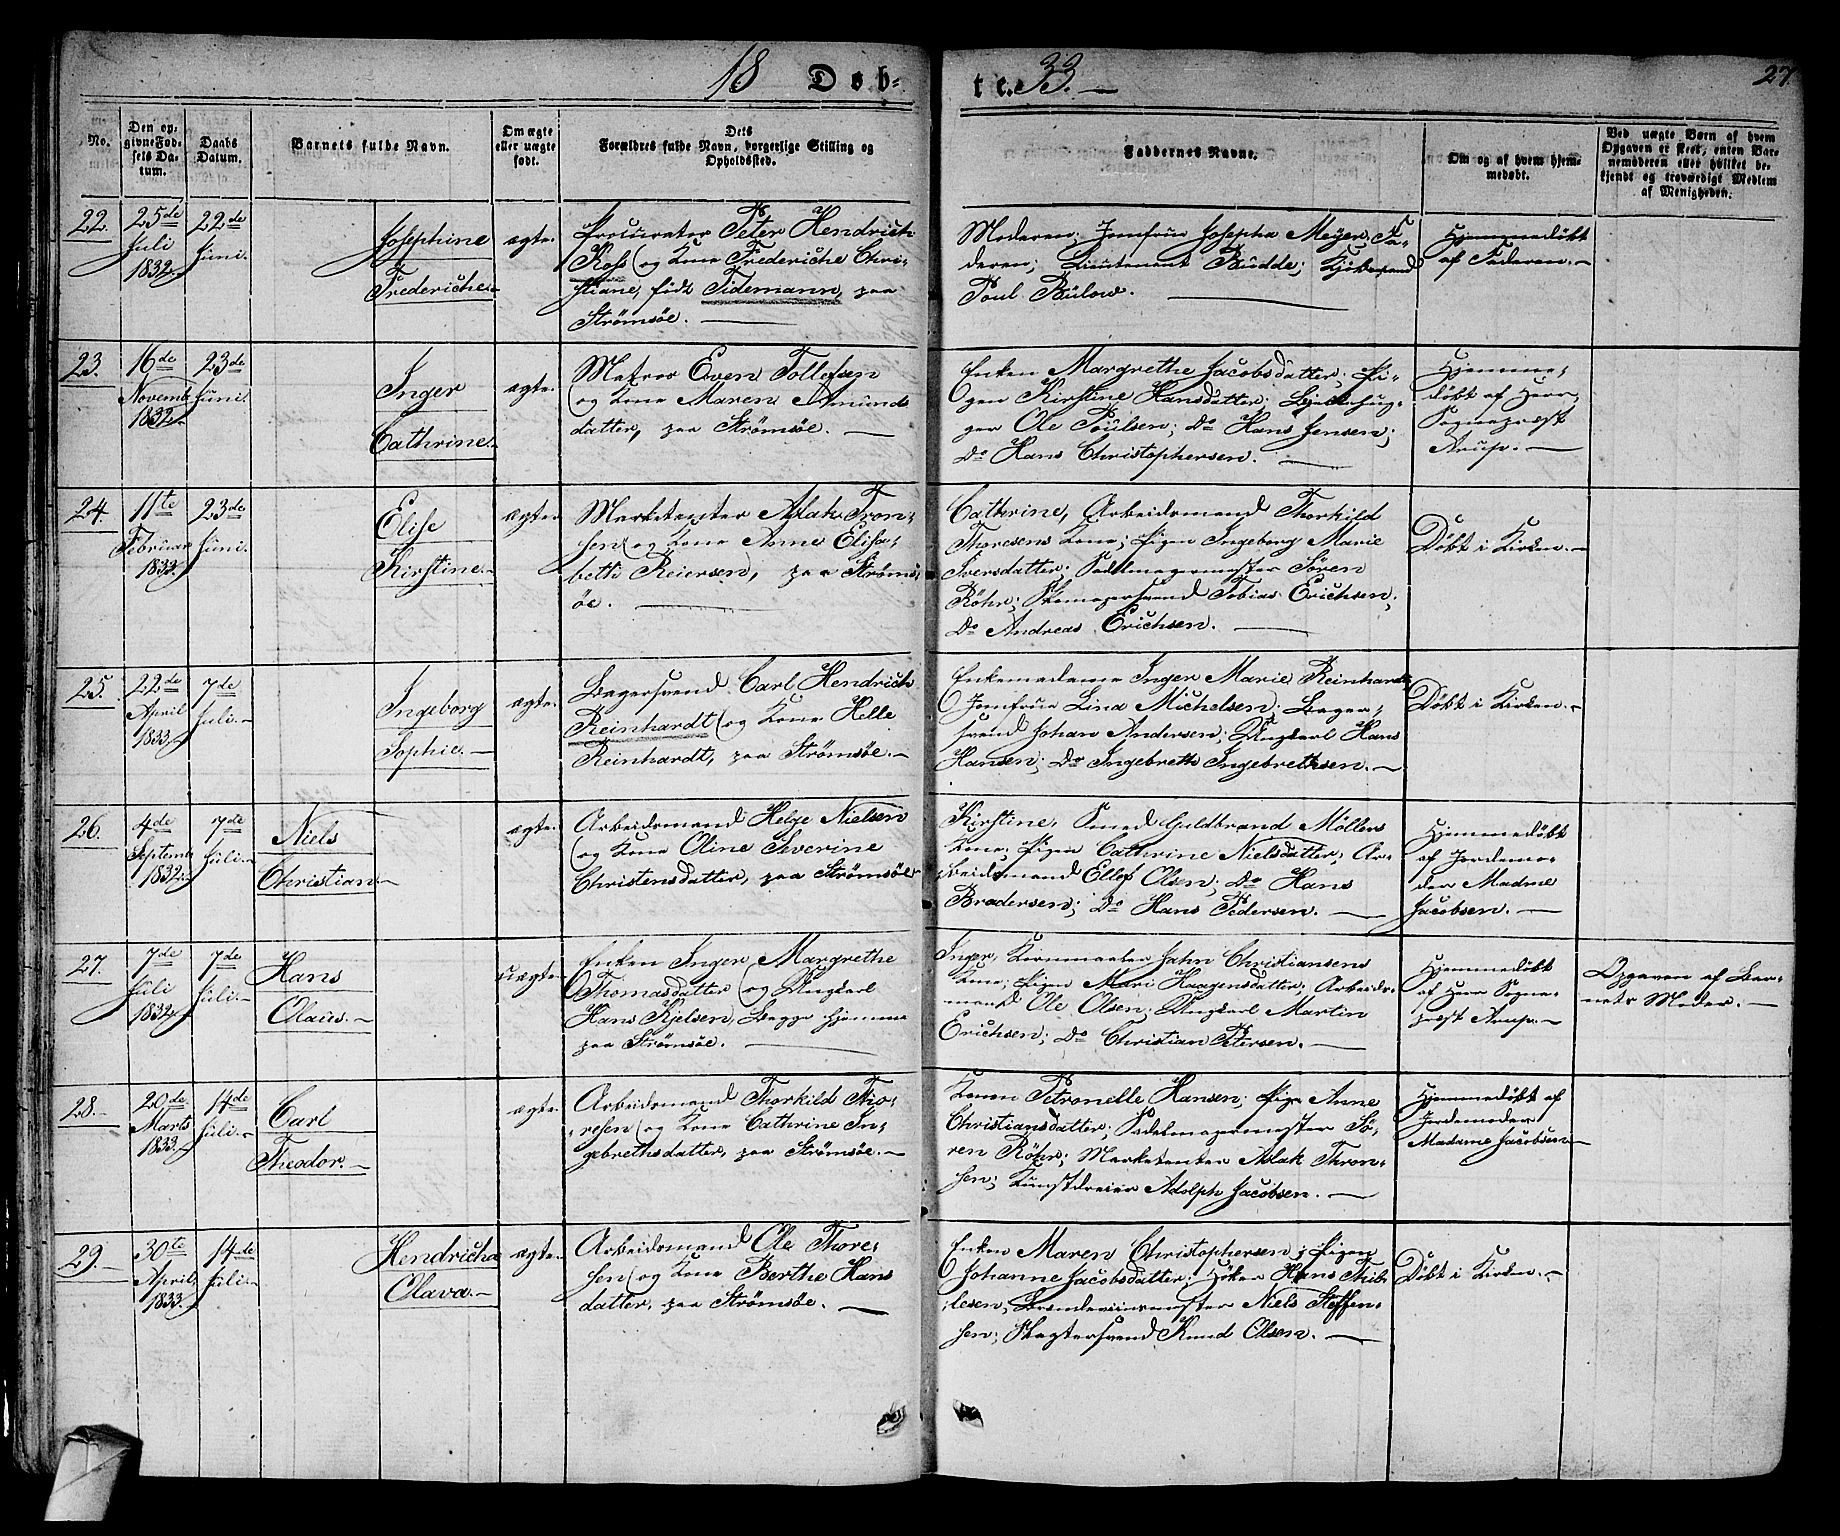 18 Døb-
te. 33. —
27
No.
Den op-
givne Fød-
sels Da-
tum.
Daabs
Datum.
Barnets fulde Navn.
Om ægte
eller uægte
født.
Dets
Forældres fulde Navn, borgerlige Stilling og
Opholdssted.
Faddernes Navne.
Om og af hvem hjem-
medøbt.
Ved uægte Børn af hvem
Opgaven er skeet, enten Bar-
nemoderen eller hvilket be-
kjendt og troværdigt Medlem
af Menigheden.
22.
25de
Juli
1832.
22de
Juni.
Josephine
Frederiche.
ægte.
Procurator Peter Hendrich
Ross og Kone Frederiche Chri-
stiane, født Tidemann, paa
Strømsöe. —
Moderen; Jomfrue Josepha Meyer; Fa-
deren; Lieutenant Budde; Kjöbmand
Poul Bülow. —
Hjemmedöbt
af Faderen. —
23.
16de
Novemb
1832.
23de
Juni.
Inger
Cathrine.
ægte.
Matros Even Tollefsen
og Kone Maren Amunds
datter, paa Strømsöe. —
Enken Margrethe Jacobsdatter; Pi-
gen Kirstine Hansdatter; Bjelkehug-
ger Ole Poulsen; Do Hans Jensen;
Do Hans Christophersen. —
Hjemme-
döbt af Herr
Sogneprest
Arup. —
24.
11te
Februar
1833.
23de
Juni.
Elise
Kirstine. —
ægte
Marketenter Aslak Tron-
sen og Kone Anne Elisa-
beth Reiersen, paa Stræms-
öe. —
Cathrine, Arbeidsmand Thorkild
Thoresens Kone; Pigen Ingeborg Marie
Iversdatter; Sadelmagermester Sören
Röhr; Skomagersvend Tobias Erichsen;
Do Andreas Erichsen. —
Döbt i Kirken. —
25.
22de
April
1833.
7de
Juli. —
Ingeborg
Sophie. —
ægte.
Bagersvend Carl Hendrich
Reinhardt og Kone Helle
Reinhardt, paa Strømsöe. —
Enkemadame Inger Marie Reinhardt
Jomfrue Lina Michelsen; Bager-
svend Johan Andersen; Ungkarl Hans
Hansen; Do Ingebreth Ingebrethsen. —
Döbt i Kirken. —
26.
4de
Septemb
1832.
7de
Juli. —
Niels
Christian. —
ægte.
Arbeidsmand Helge Nielsen
og Kone Oline Severine
Christensdatter, paa Strømsöe
Kirstine, Smed Guldbrand Möllers
Kone; Pigen Cathrine Nielsdatter; Ar-
beidsmand Ellef Olsen; Do Hans
Brodersen; Do Hans Pedersen. —
Hjemmedöbt
af Jordemo-
der Madme
Jacobsen. —
27.
7de
Juli
1832.
7de
Juli. —
Hans
Olaus. —
uægte.
Enken Inger Margrethe
Thomasdatter og Ungkarl
Hans Kjelsen, begge hjemme
paa Strømsöe. —
Inger, Kornmaaler Jahn Christiansens
Kone; Pigen Mari Haagensdatter; Arbeids-
mand Ole Olsen; Ungkarl Martin
Erichsen; Do Christian Petersen. —
Hjemmedöbt
af Herr Sogne-
prest Arup. —
Opgaven af Bar-
nets Moder. —
28. —
20de
Marts
1833.
14de
Juli. —
Carl
Theodor. —
ægte.
Arbeidsmand Thorkild Tho-
resen og Kone Cathrine In-
gebrethsdatter, paa Strømsöe. —
Konen Petronelle Hansen; Pige Anne
Christiansdatter; Sadelmagermester Sö-
ren Röhr; Marketenter Aslak Thron-
sen; Kunstdreier Adolph Jacobsen. —
Hjemmedöbt af
Jordemoder
Madame Jacobsen —
29.
30te
April
1833.
14de
Juli. —
Hendricha
Olava. —
ægte.
Arbeidsmand Ole Thore-
sen og Kone Berthe Hans
datter, paa Strømsöe. —
Enken Maren Christophersen; Pigen
Johanne Jacobsdatter; Höker Hans Thib-
lesen; Brandeviinsmester Niels Steffen-
sen; Slagtersvend Knud Olsen. —
Döbt i Kirken. —